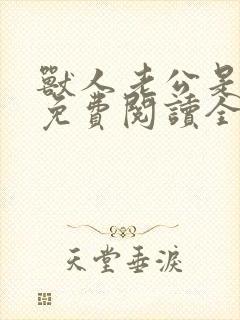 獸人老公是
免費閱讀全
天堂垂淚